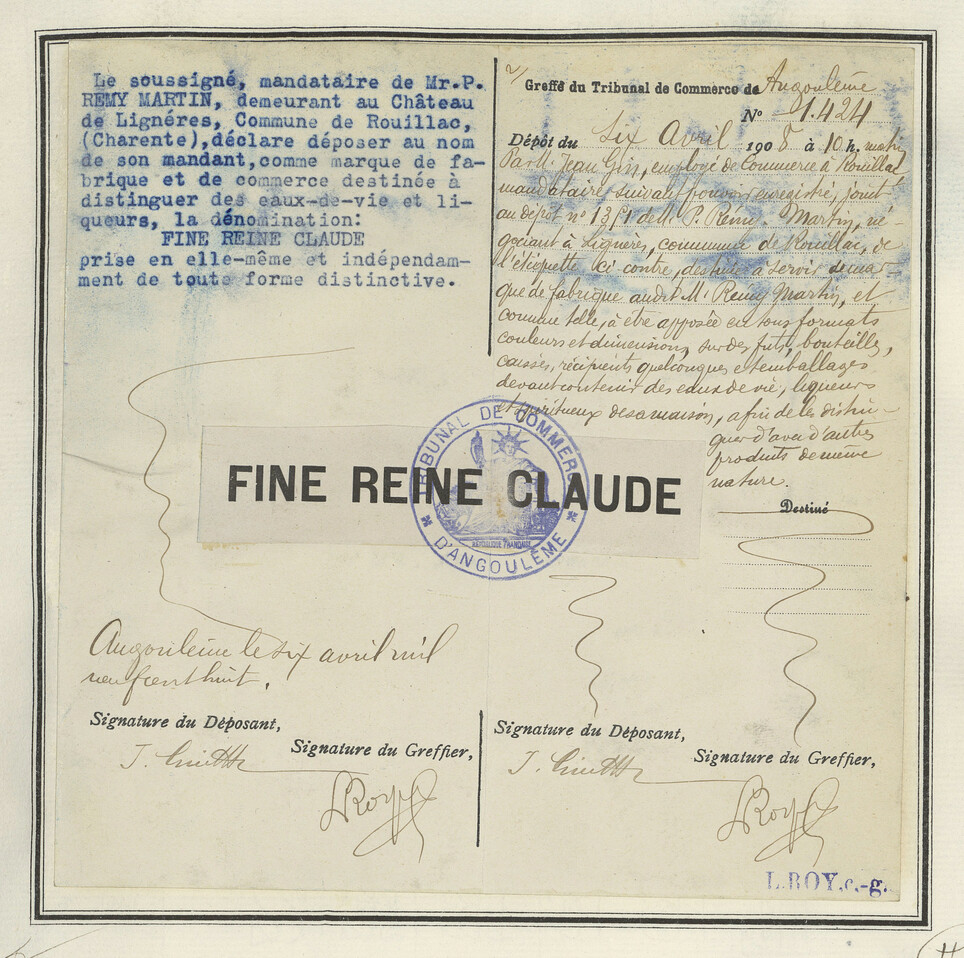 Le soussigné, mandataire de Mr.P.
REMY MARTIN, demeurant au Château
de Lignéres, Commune de Rouillac,
(Charente), déclare déposer au nom
de son mandant, comme marque de fa-
brique et de commerce destinée à
distinguer des eaux-de-vie et li-
queurs, la dénomination:
FINE REINE CLAUDE
prise en elle-même et indépendam-
ment de toute forme distinctive.
Greffe du Tribunal de Commerce de Angoulême
No 1.424
Dépôt du Six Avril 1908 à 10 h. matin
Par M. Jean employé de Commerce à Rouillac
mandataire suivant pouvoir enregistré, joint
au dépôt no 1351 de M. P. Rémy-Martin, né-
gociant à Lignères, commune de Rouillac, de
l'étiquette ci-contre, destinée à servir de mar-
que de fabrique audit M. Remy Martin, et
comme telle, à être apposée en tous formats
couleurs et dimensions, sur des fûts, bouteilles,
caisses, récipients quelconques et emballages
devant contenir des eaux de vie, liqueurs
et spiritueux de sa maison, afin de les distin-
guer d'avec d'autres
produits de même
nature.
Destiné
FINE REINE CLAUDE
TRIBUNAL DE COMMERCE
RÉPUBLIQUE FRANÇAISE
D'ANGOULÊME
Angoulême le six avril mil
neuf cent huit.
Signature du Déposant,
Signature du Greffier,
LRoy
Signature du Déposant,
Signature du Greffier,
LRoy
L.ROY.c.-g.